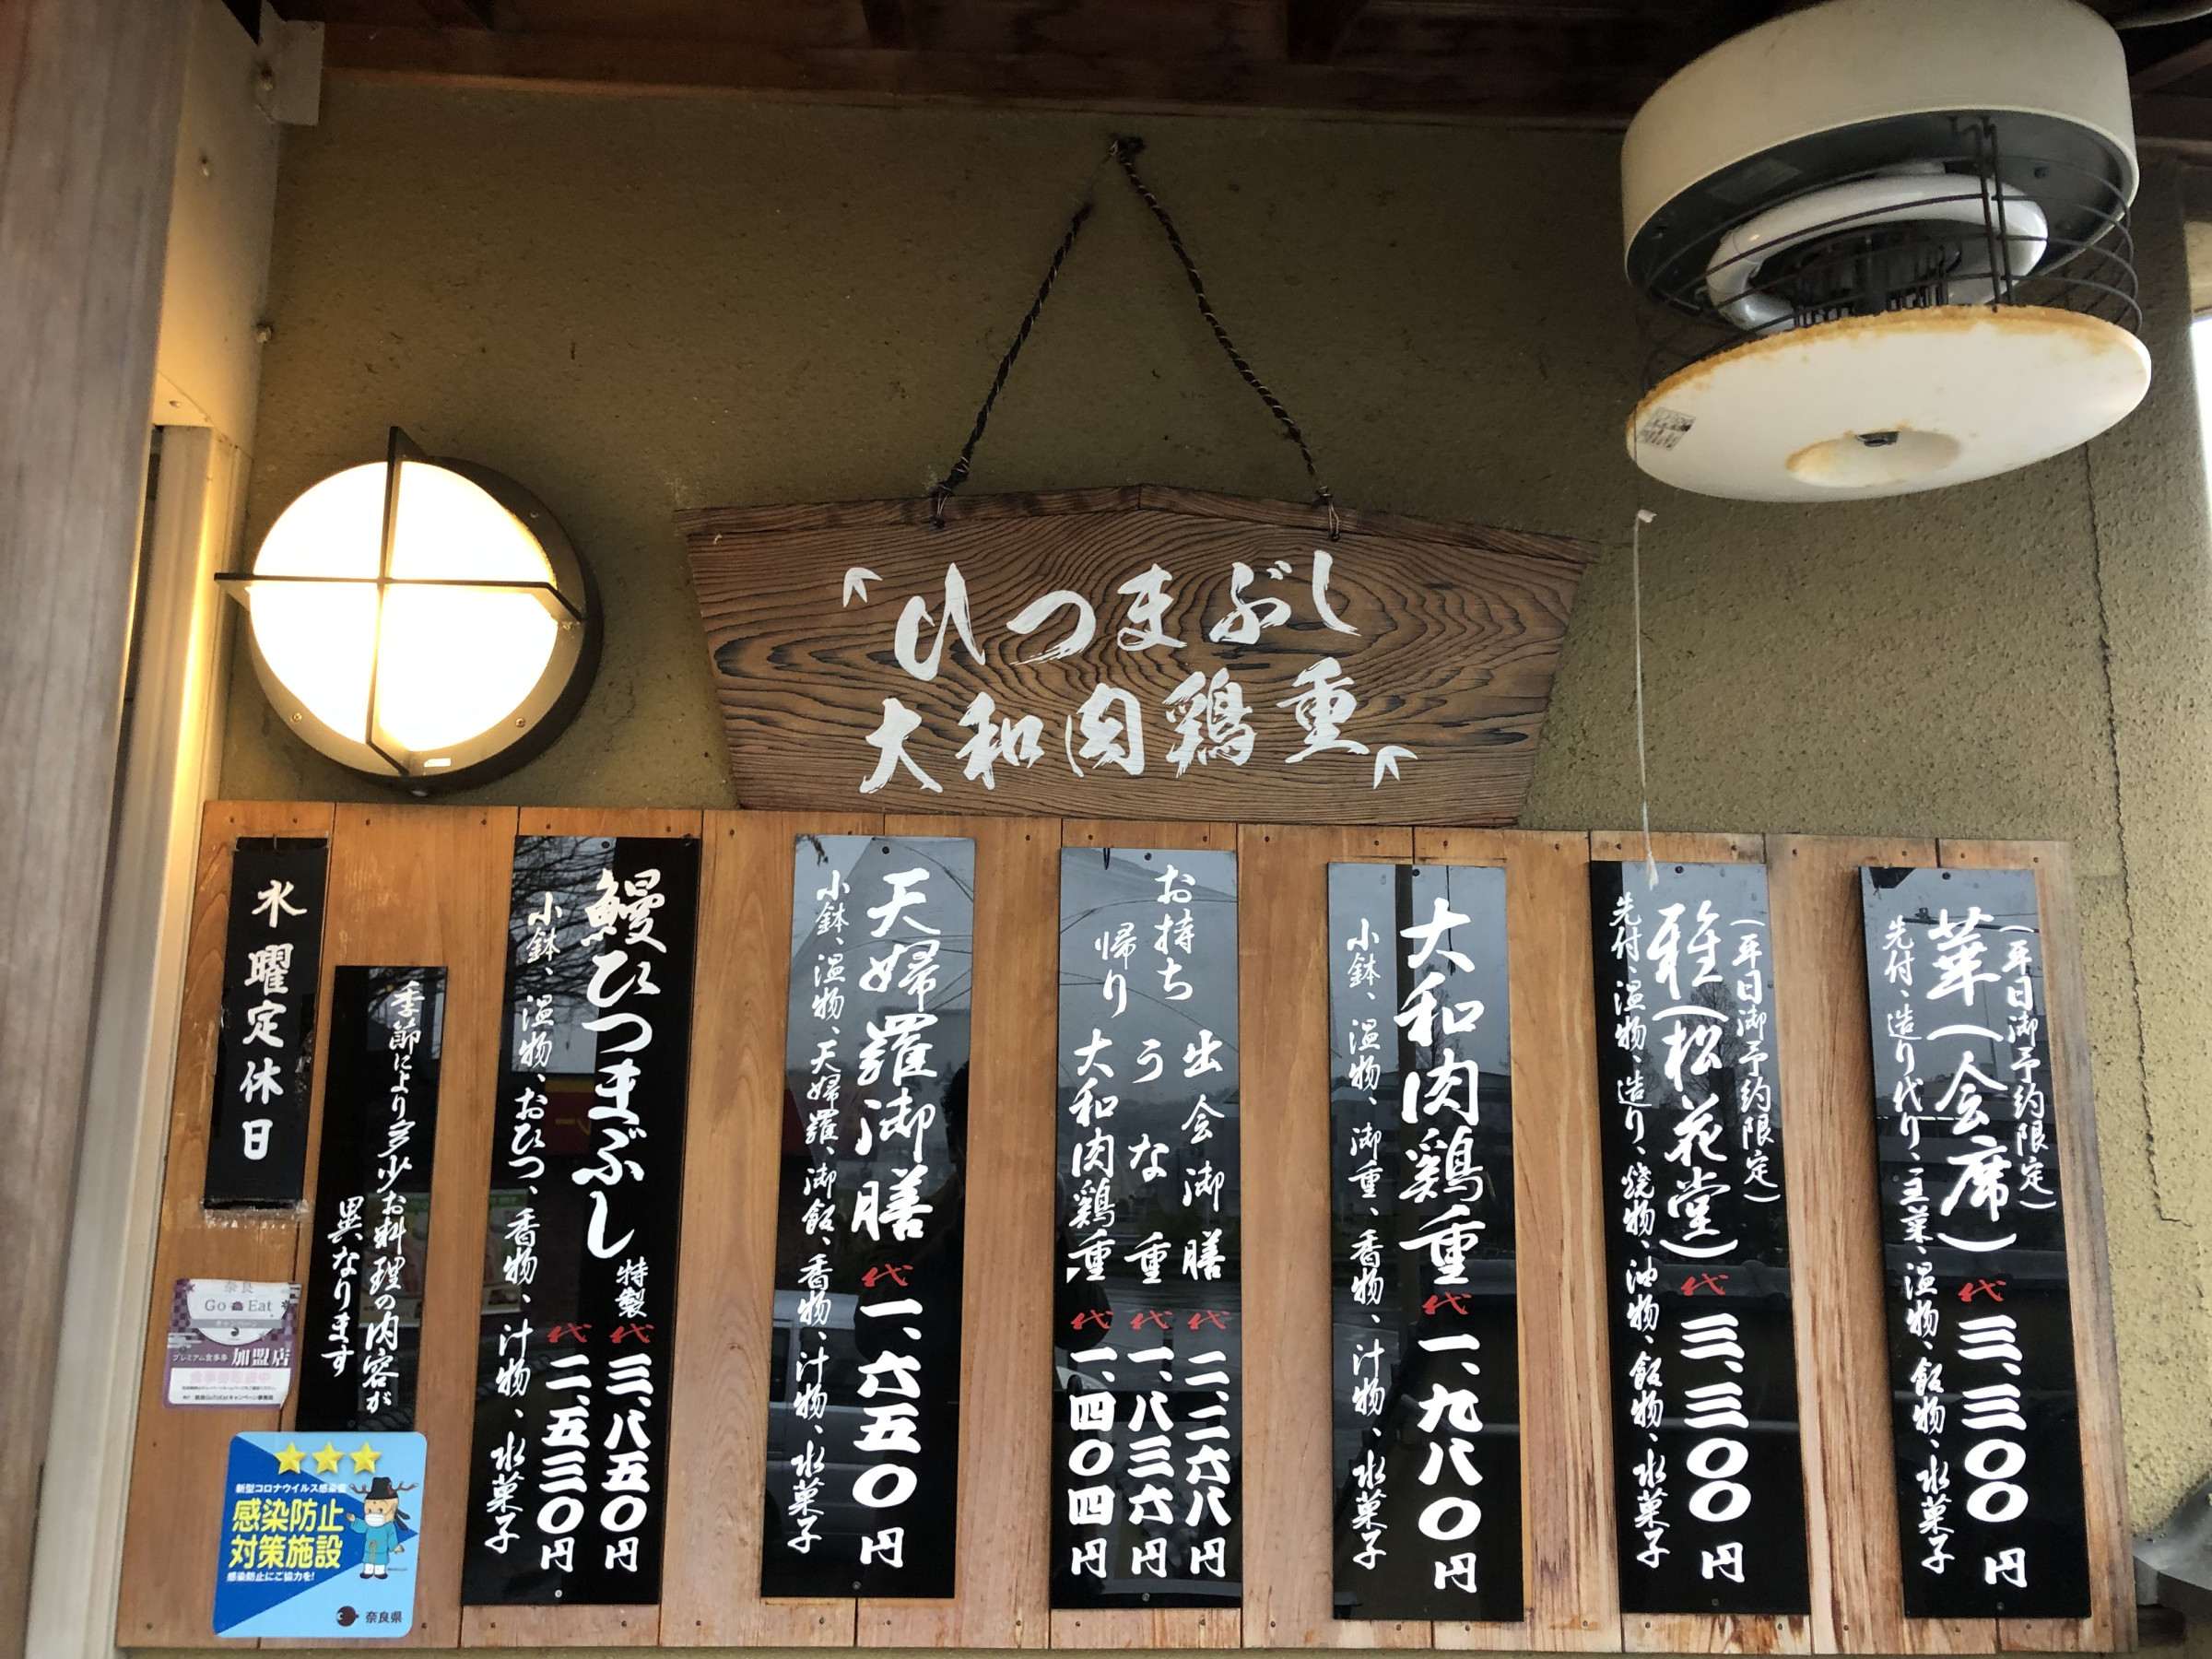 “ひつまぶし
大和肉鶏重”
(平日御予約限定)
華(会席)代三、三〇〇円
先付、造り代り、主菜、温物、飯物、水菓子
(平日御予約限定)
雅(松花堂)代三、三〇〇円
先付、温物、造り、焼物、油物、飯物、水菓子
大和肉鶏重代一、九八〇円
小鉢、温物、御重、香物、汁物、水菓子
お持ち
帰り
出会御膳代二、二六八円
うな重代一、八三六円
大和肉鶏重代一、四〇四円
天婦羅御膳代一、六五〇円
小鉢、温物、天婦羅、御飯、香物、汁物、水菓子
鰻ひつまぶし
特製代三、八五〇円
代二、五三〇円
小鉢、温物、おひつ、香物、汁物、水菓子
季節により多少お料理の内容が
異なります
水曜定休日
奈良
Go Eat
キャンペーン
プレミアム食事券 加盟店
新型コロナウイルス感染症
感染防止
対策施設
感染防止にご協力を!
奈良県